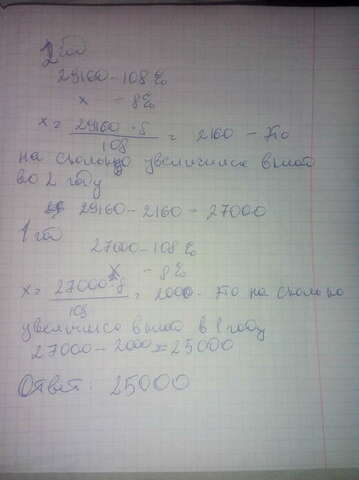 2 год
29160 - 108 %
x - 8 %
x = 29160 · 8 / 108 = 2160 - это
на сколько увеличился вклад
во 2 году
29160 - 2160 = 27000
1 год
27000 - 108 %
x - 8 %
x = 27000 · 8 / 108 = 2000 - это на сколько
увеличился вклад в 1 году
27000 - 2000 = 25000
Ответ: 25000